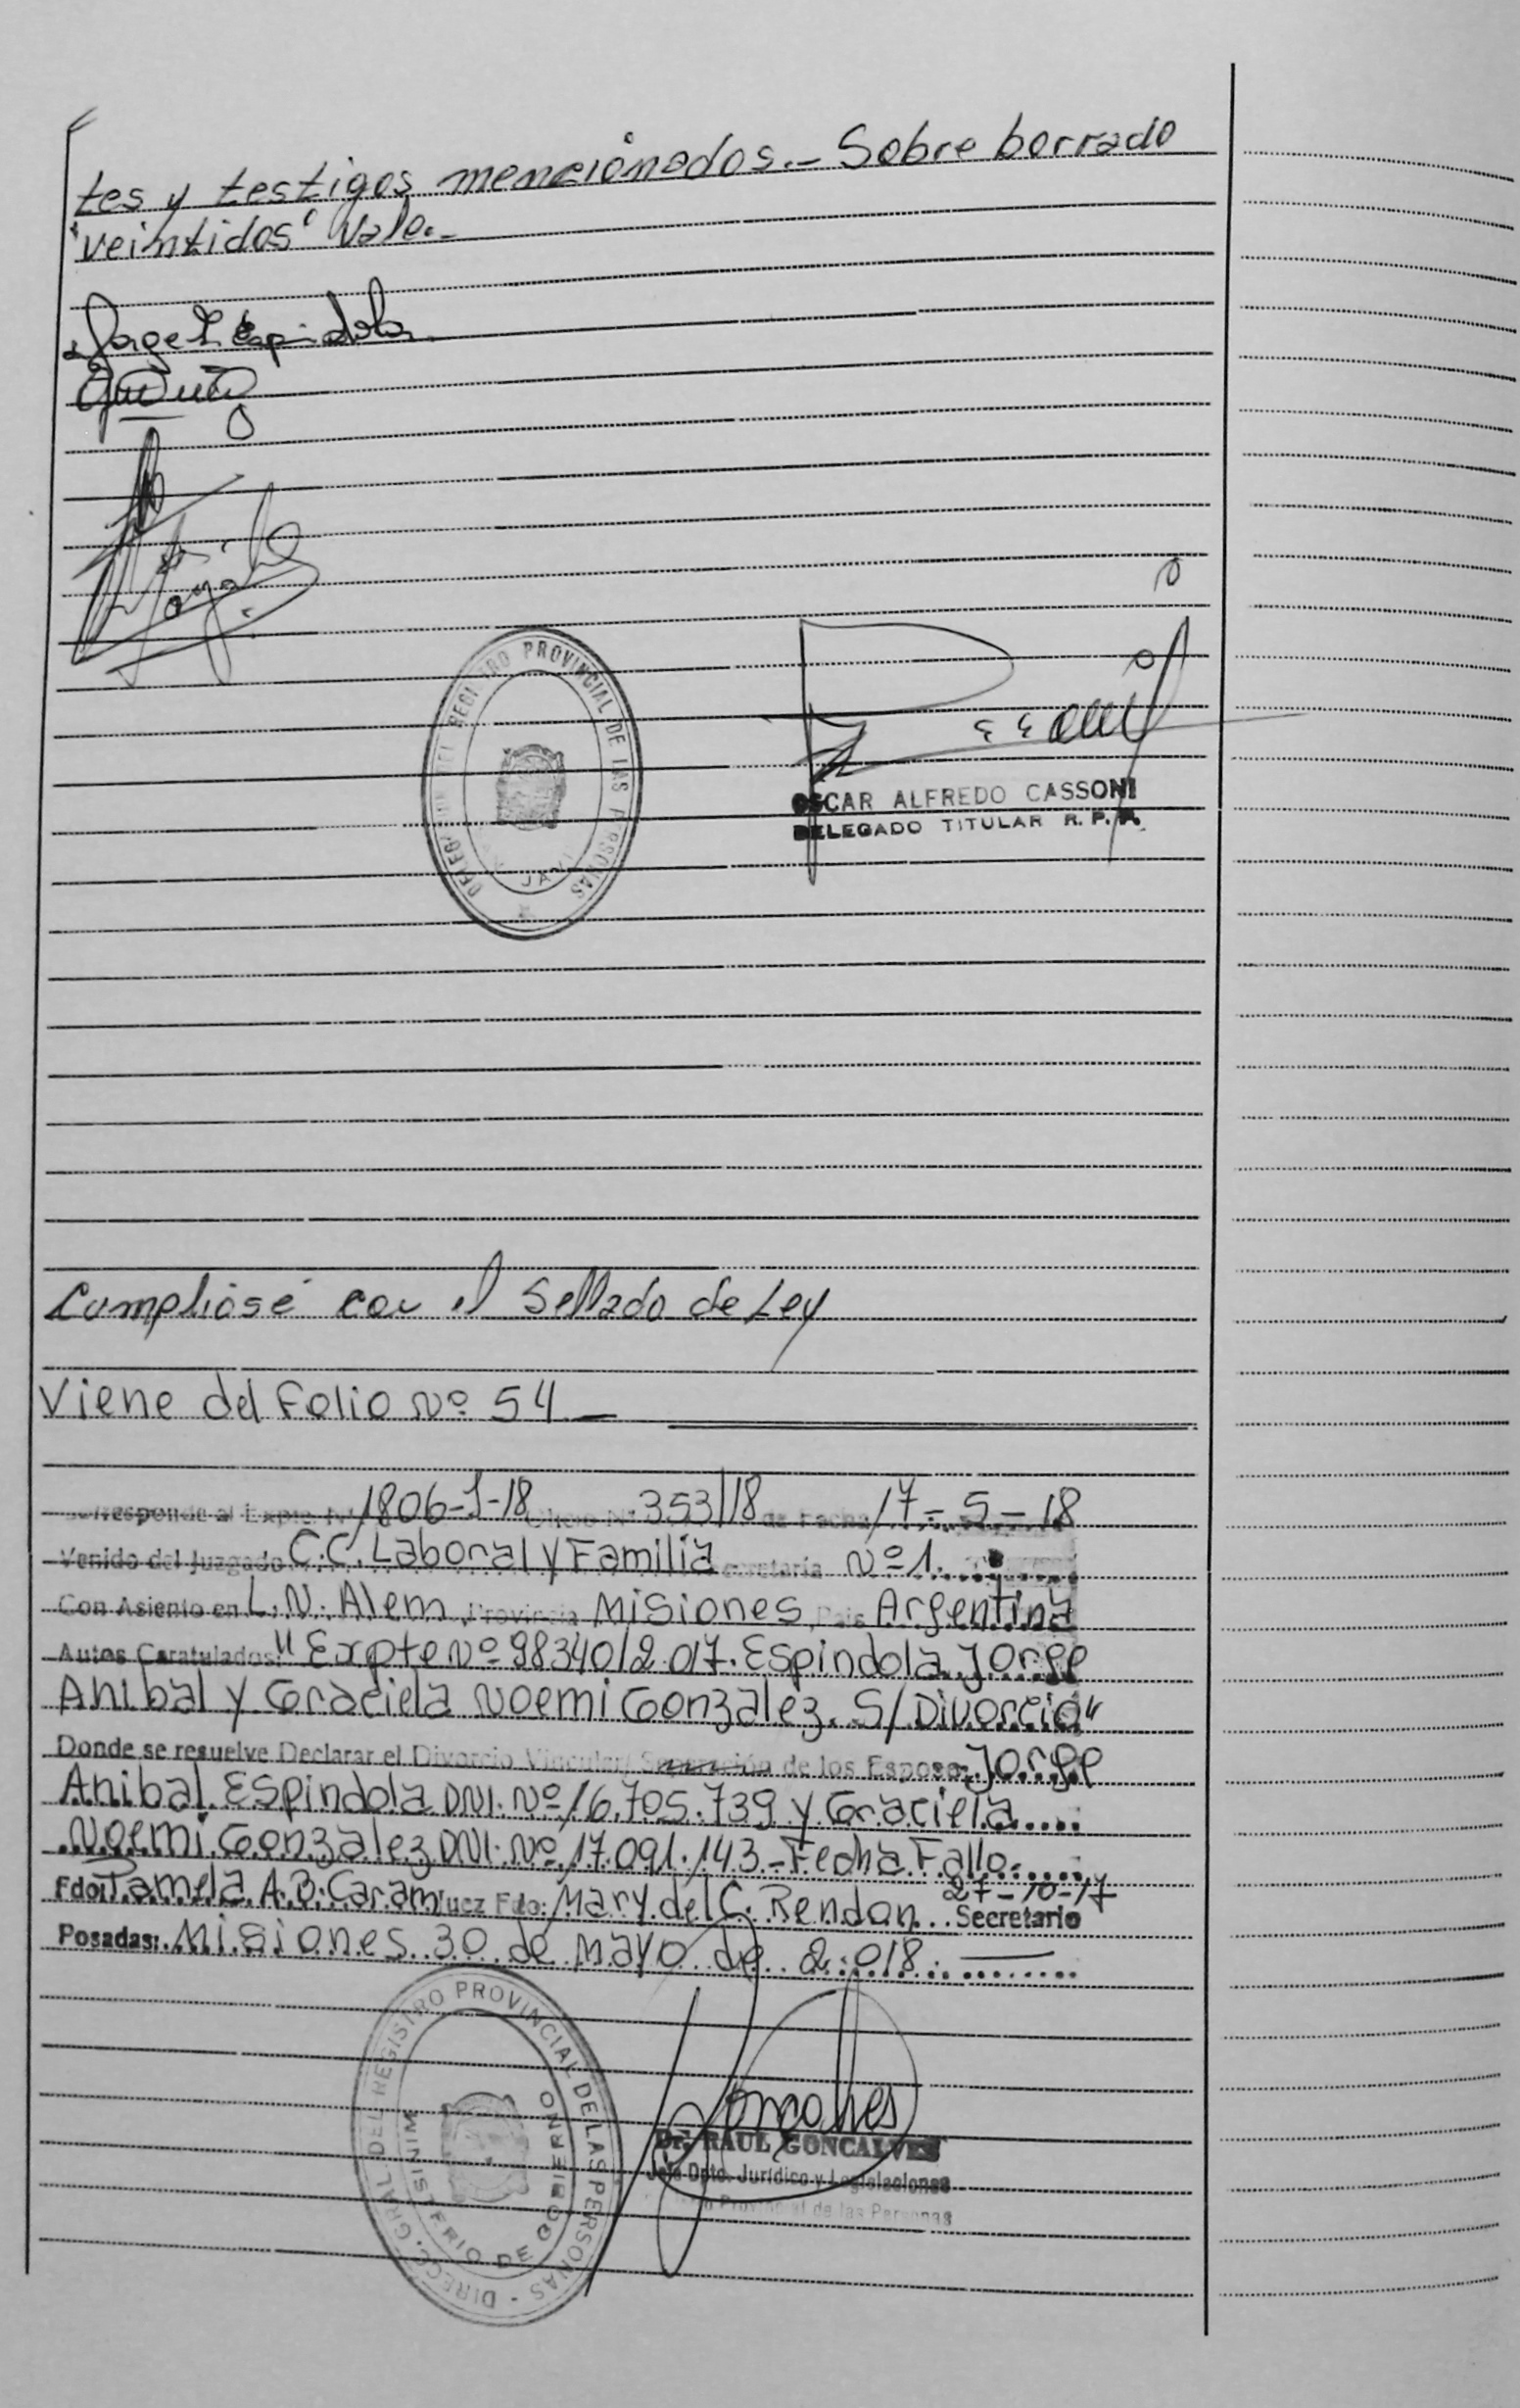 tes y testigos mencionados.- Sobre borrado
"veintidos" Vale.-
Jorge Espindola
REGISTRO PROVINCIAL DE LAS PERSONAS
OSCAR ALFREDO CASSONI
DELEGADO TITULAR R. P. P.
Cumpliose con el Sellado de Ley
Viene del Folio Nº 54 —
Corresponde al Expte. Nº 1806-J-18 Oficio Nº 353/18 de Fecha 17-5-18
Venido del Juzgado C.C. Laboral y Familia Secretaría Nº 1.
Con Asiento en L.N. Alem Provincia Misiones País Argentina
Autos Caratulados: "Expte Nº 98340/2.017. Espindola Jorge
Anibal y Graciela Noemi Gonzalez S/ Divorcio"
Donde se resuelve Declarar el Divorcio Vincular/ Separación de los Esposos Jorge
Anibal Espindola DNI. Nº 16.705.739 y Graciela
Noemi Gonzalez DNI. Nº 17.091.143 - Fecha Fallo:
27-10-17
Fdo: Pamela A.B. Caram Juez Fdo: Mary del C. Rendan Secretario
Posadas: Misiones 30 de Mayo de 2.018. —
DIRECC. GRAL. DEL REGISTRO PROVINCIAL DE LAS PERSONAS
MINISTERIO DE GOBIERNO
Goncalves
Dr. RAUL GONCALVES
Jefe Dpto. Jurídico y Legislaciones
Provincial de las Personas